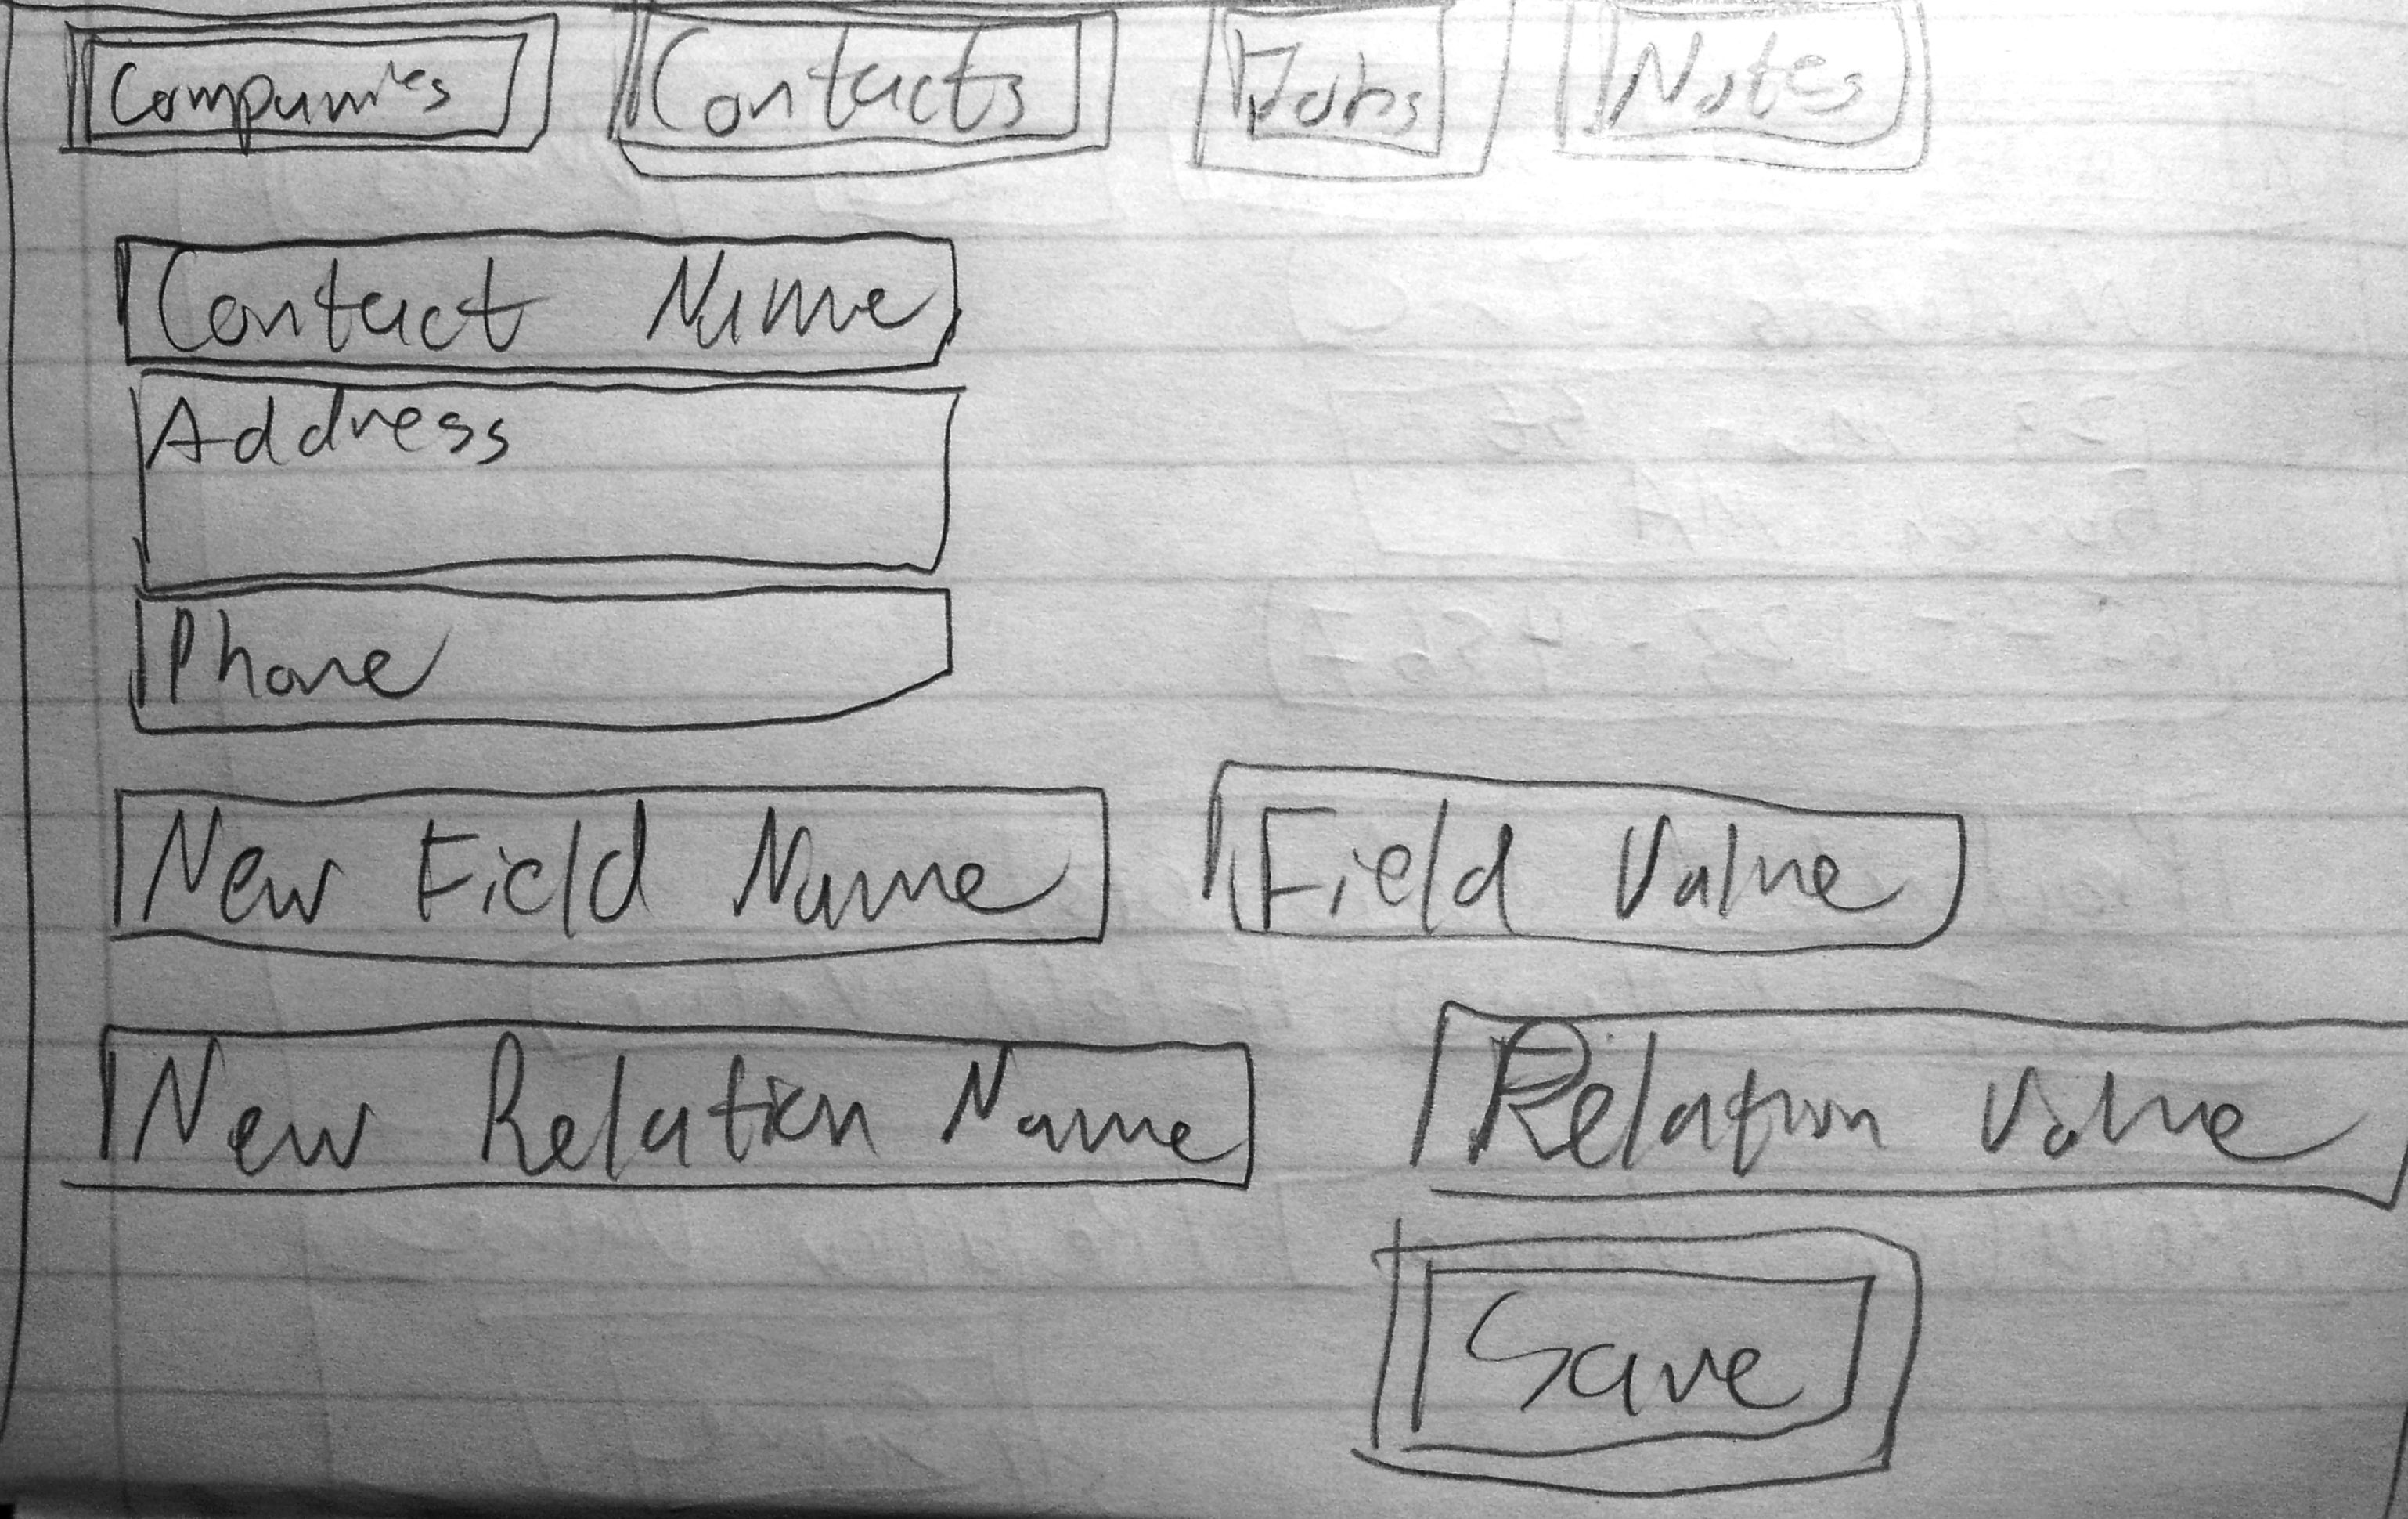 Companies Contacts Jobs Notes
Contact Name
Address
Phone
New Field Name Field Value
New Relation Name Relation Value
Save